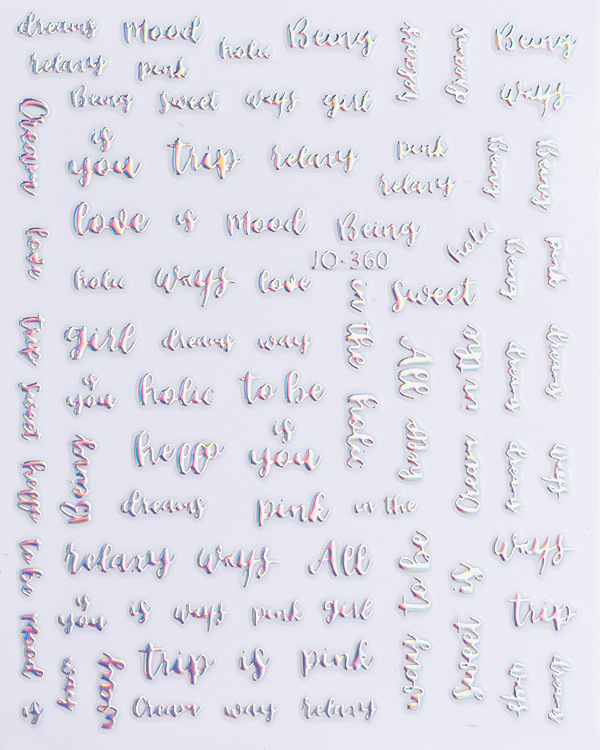 dreams Mood holic Being Being
relaxy pink
Being sweet ways girl ways
Cream
is
you trip relaxy pink Being Being
relaxy
love is Mood Being holic Being pink
love
JO-360
holic ways love in the sweet
trip girl dreams way All in the dreamy dreamy
is
you holic to be
sweet
holic
hello is
you Being hello Cream dreamy way
hello
dreams pink in the
to be relaxy ways All to be is ways
is
you is ways pink girl trip
Mood
way trip is pink sweet ways dreamy
is Cream way relaxy